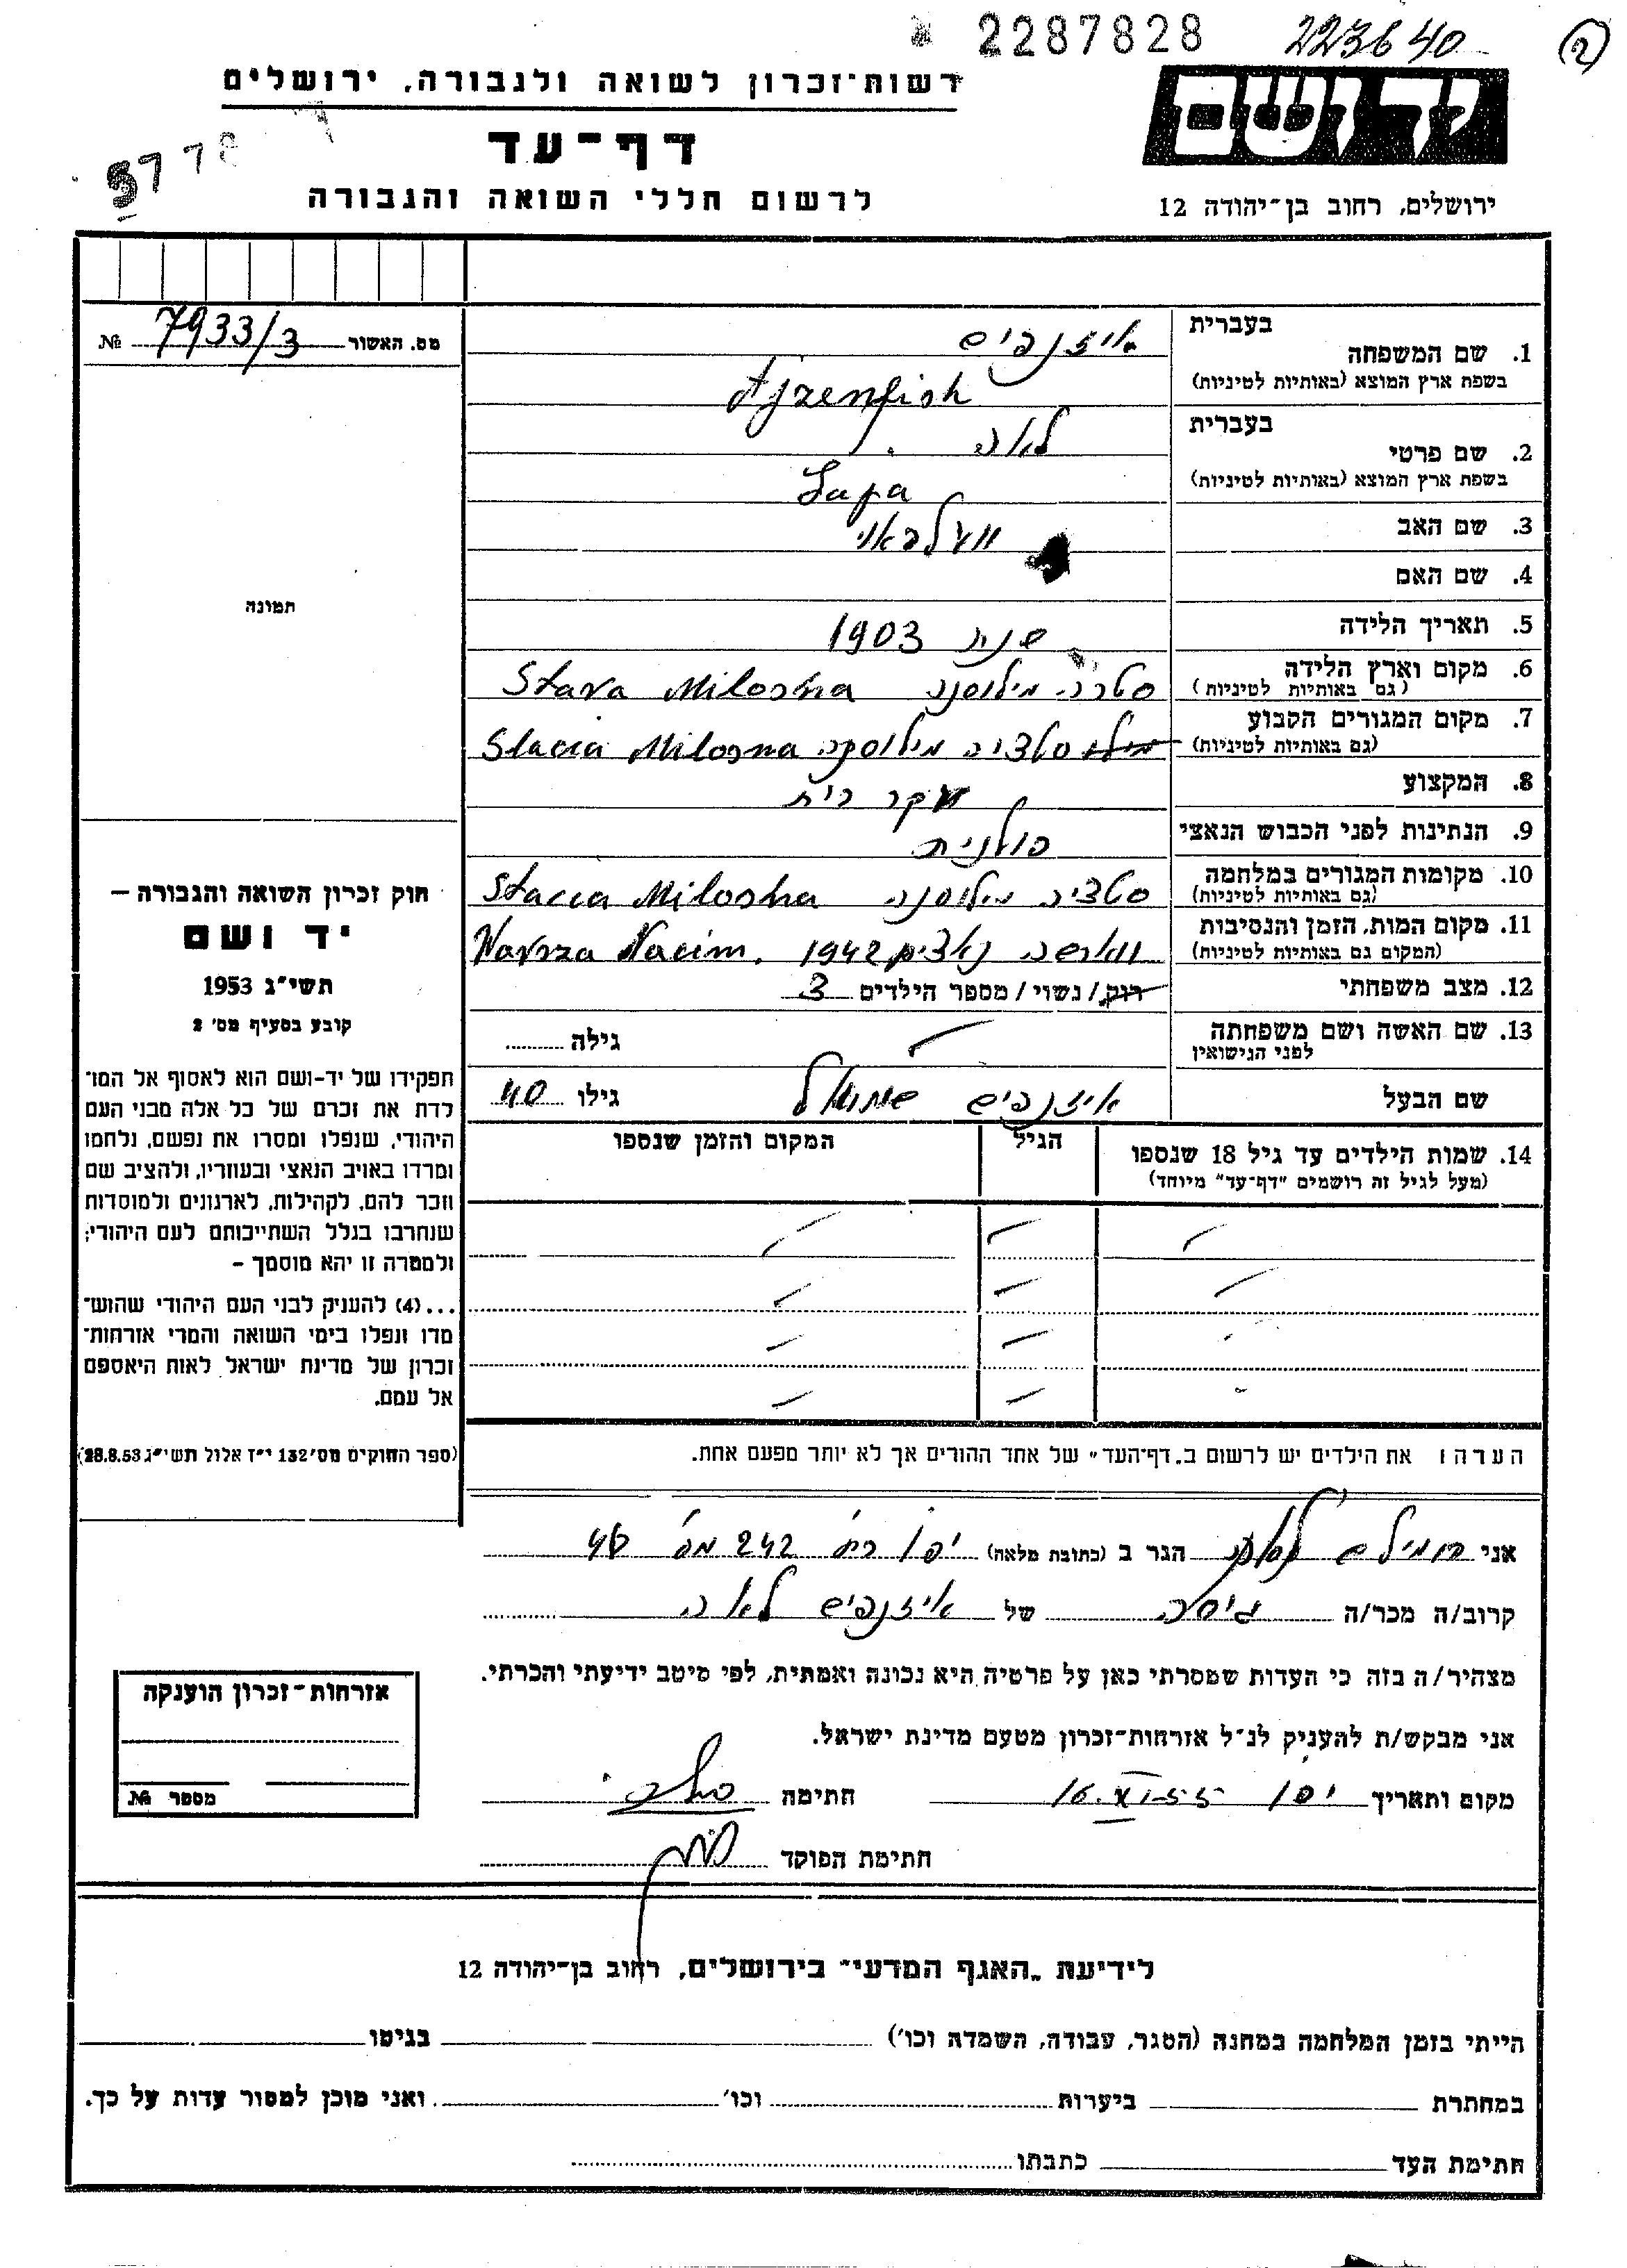 2287828 223640 2
יד ושם
רשות-זכרון לשואה ולגבורה, ירושלים
דף-עד
לרשום חללי השואה והגבורה
ירושלים, רחוב בן-יהודה 12
מס. האשור 7933/3 №
תמונה
חוק זכרון השואה והגבורה –
יד ושם
תשי"ג 1953
קובע בסעיף מס' 2
תפקידו של יד-ושם הוא לאסוף אל המו־
לדת את זכרם של כל אלה מבני העם
היהודי, שנפלו ומסרו את נפשם, נלחמו
ומרדו באויב הנאצי ובעוזריו, ולהציב שם
וזכר להם, לקהילות, לארגונים ולמוסדות
שנחרבו בגלל השתייכותם לעם היהודי;
ולמטרה זו יהא מוסמך –
...(4) להעניק לבני העם היהודי שהוש־
מדו ונפלו בימי השואה והמרי אזרחות־
זכרון של מדינת ישראל לאות היאספם
אל עמם.
(ספר החוקים מס' 132 י"ז אלול תשי"ג 28.8.53)
בעברית איזנפיש
1. שם המשפחה
בשפת ארץ המוצא (באותיות לטיניות) Ajzenfish
בעברית לאה
2. שם פרטי
בשפת ארץ המוצא (באותיות לטיניות) Laja
3. שם האב
4. שם האם
5. תאריך הלידה שנת 1903
6. מקום וארץ הלידה סטרה מילוסנה Stara Milosna
(גם באותיות לטיניות)
7. מקום המגורים הקבוע סטציה מילוסנה Stacia Milosna
(גם באותיות לטיניות)
8. המקצוע עקר בית
9. הנתינות לפני הכבוש הנאצי פולנית
10. מקומות המגורים במלחמה סטציה מילוסנה Stacia Milosna
(גם באותיות לטיניות)
11. מקום המות, הזמן והנסיבות ווארשה נאצים 1942 Warsza Nacim.
(המקום גם באותיות לטיניות)
12. מצב משפחתי רוק/נשוי/מספר הילדים 3
13. שם האשה ושם משפחתה גילה
לפני הנישואין
שם הבעל איזנפיש שמואל גילו 40
14. שמות הילדים עד גיל 18 שנספו הגיל המקום והזמן שנספו
(מעל לגיל זה רושמים "דף-עד" מיוחד)
הערה: את הילדים יש לרשום ב"דף-העד" של אחד ההורים אך לא יותר מפעם אחת.
אני הגר ב (כתובת מלאה) יפו 242
קרוב/ה מכר/ה גיסה של איזנפיש לאה
מצהיר/ה בזה כי העדות שמסרתי כאן על פרטיה היא נכונה ואמתית, לפי מיטב ידיעתי והכרתי.
אני מבקש/ת להעניק לנ"ל אזרחות-זכרון מטעם מדינת ישראל.
מקום ותאריך יפו 16.XI.55 חתימה
חתימת הפוקד
אזרחות-זכרון הוענקה
מספר №
לידיעת "האגף המדעי" בירושלים, רחוב בן-יהודה 12
הייתי בזמן המלחמה במחנה (הסגר, עבודה, השמדה וכו') בגיטו
במחתרת ביערות וכו' ואני מוכן למסור עדות על כך.
חתימת העד כתבתו